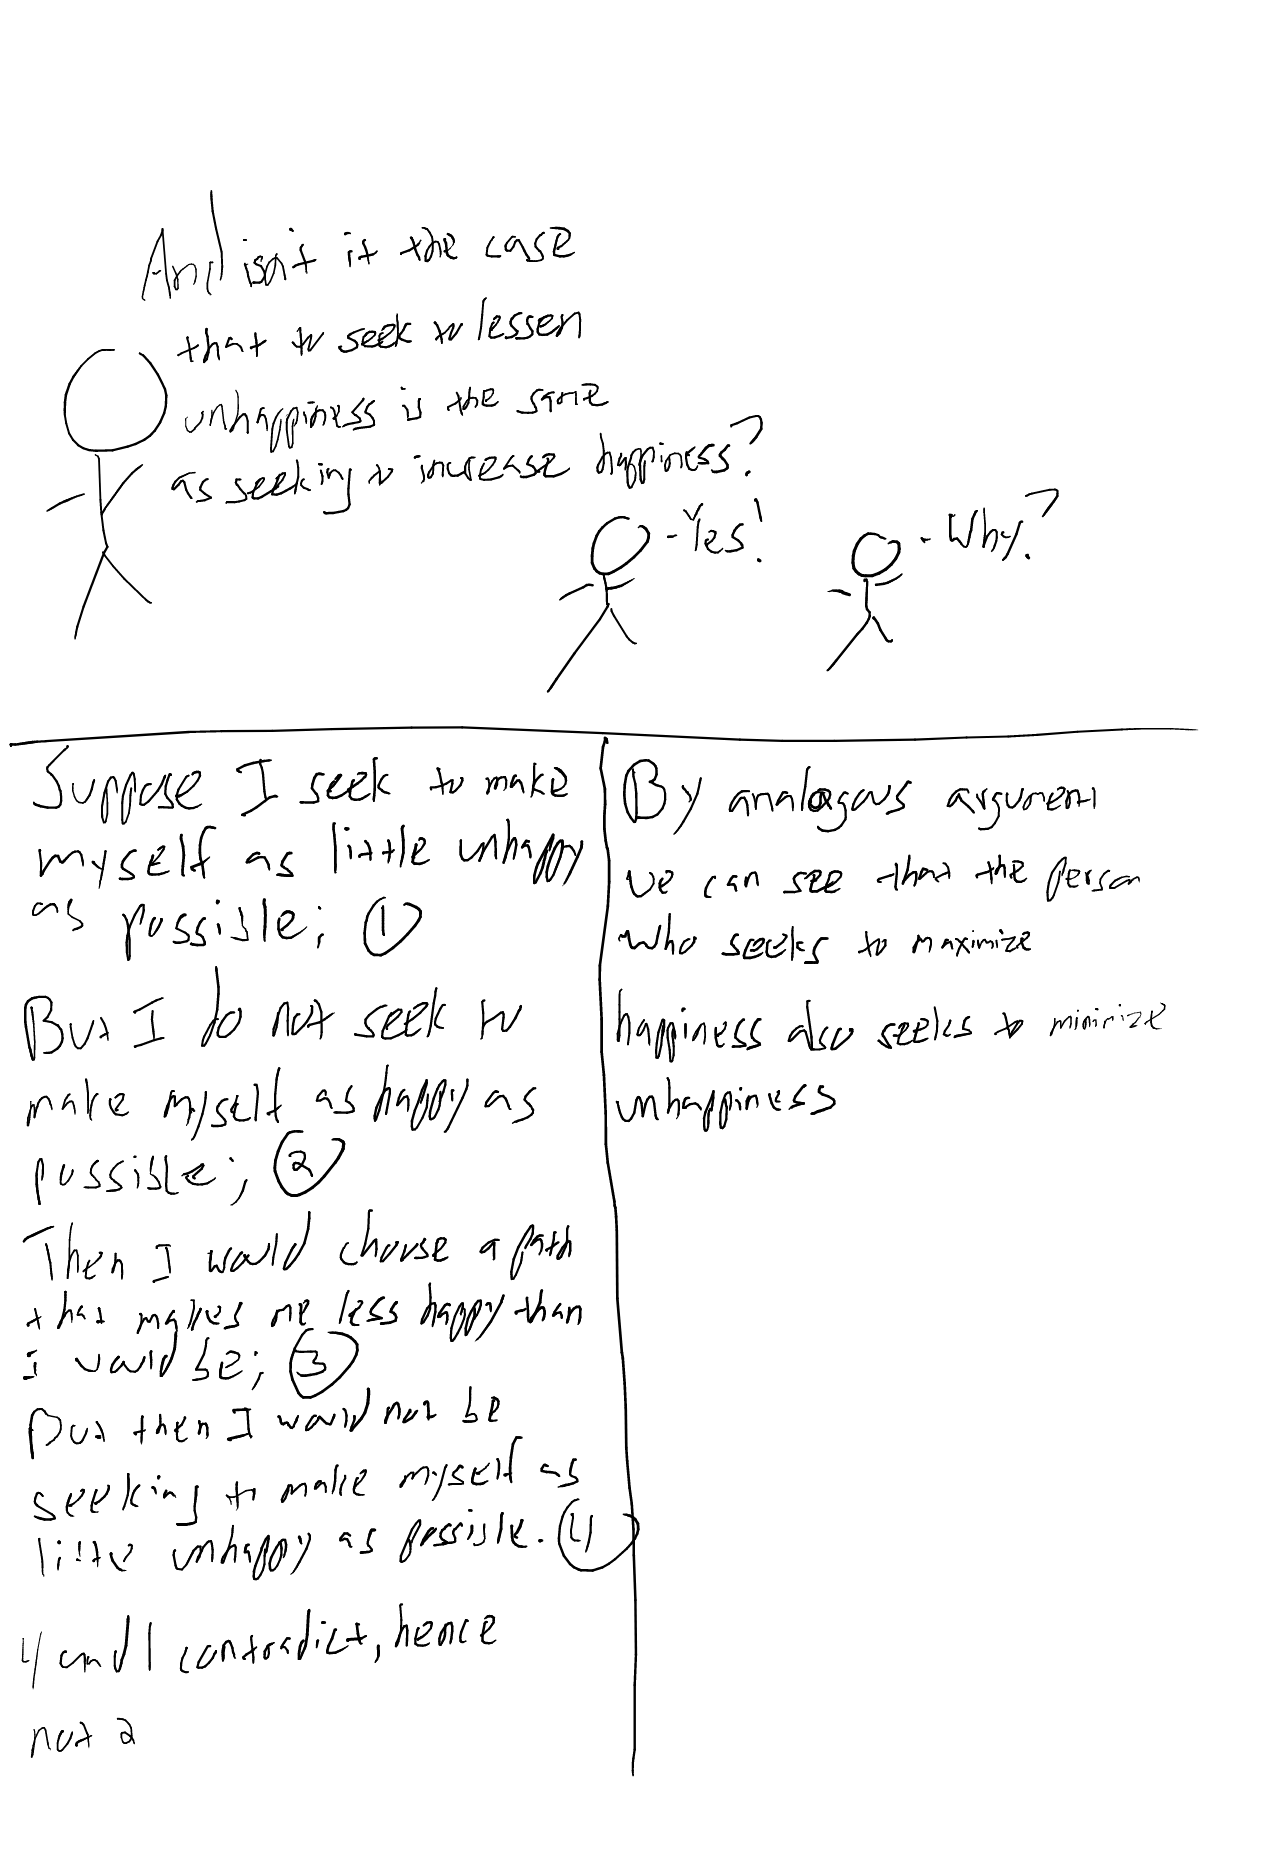 And isn't it the case
that to seek to lessen
unhappiness is the same
as seeking to increase happiness?
- Yes!
- Why?
Suppose I seek to make
myself as little unhappy
as possible; ①
But I do not seek to
make myself as happy as
possible; ②
Then I would choose a path
that makes me less happy than
I would be; ③
But then I would not be
seeking to make myself as
little unhappy as possible. ④
4 and 1 contradict, hence
not 2
By analogous argument
we can see that the person
who seeks to maximize
happiness also seeks to minimize
unhappiness